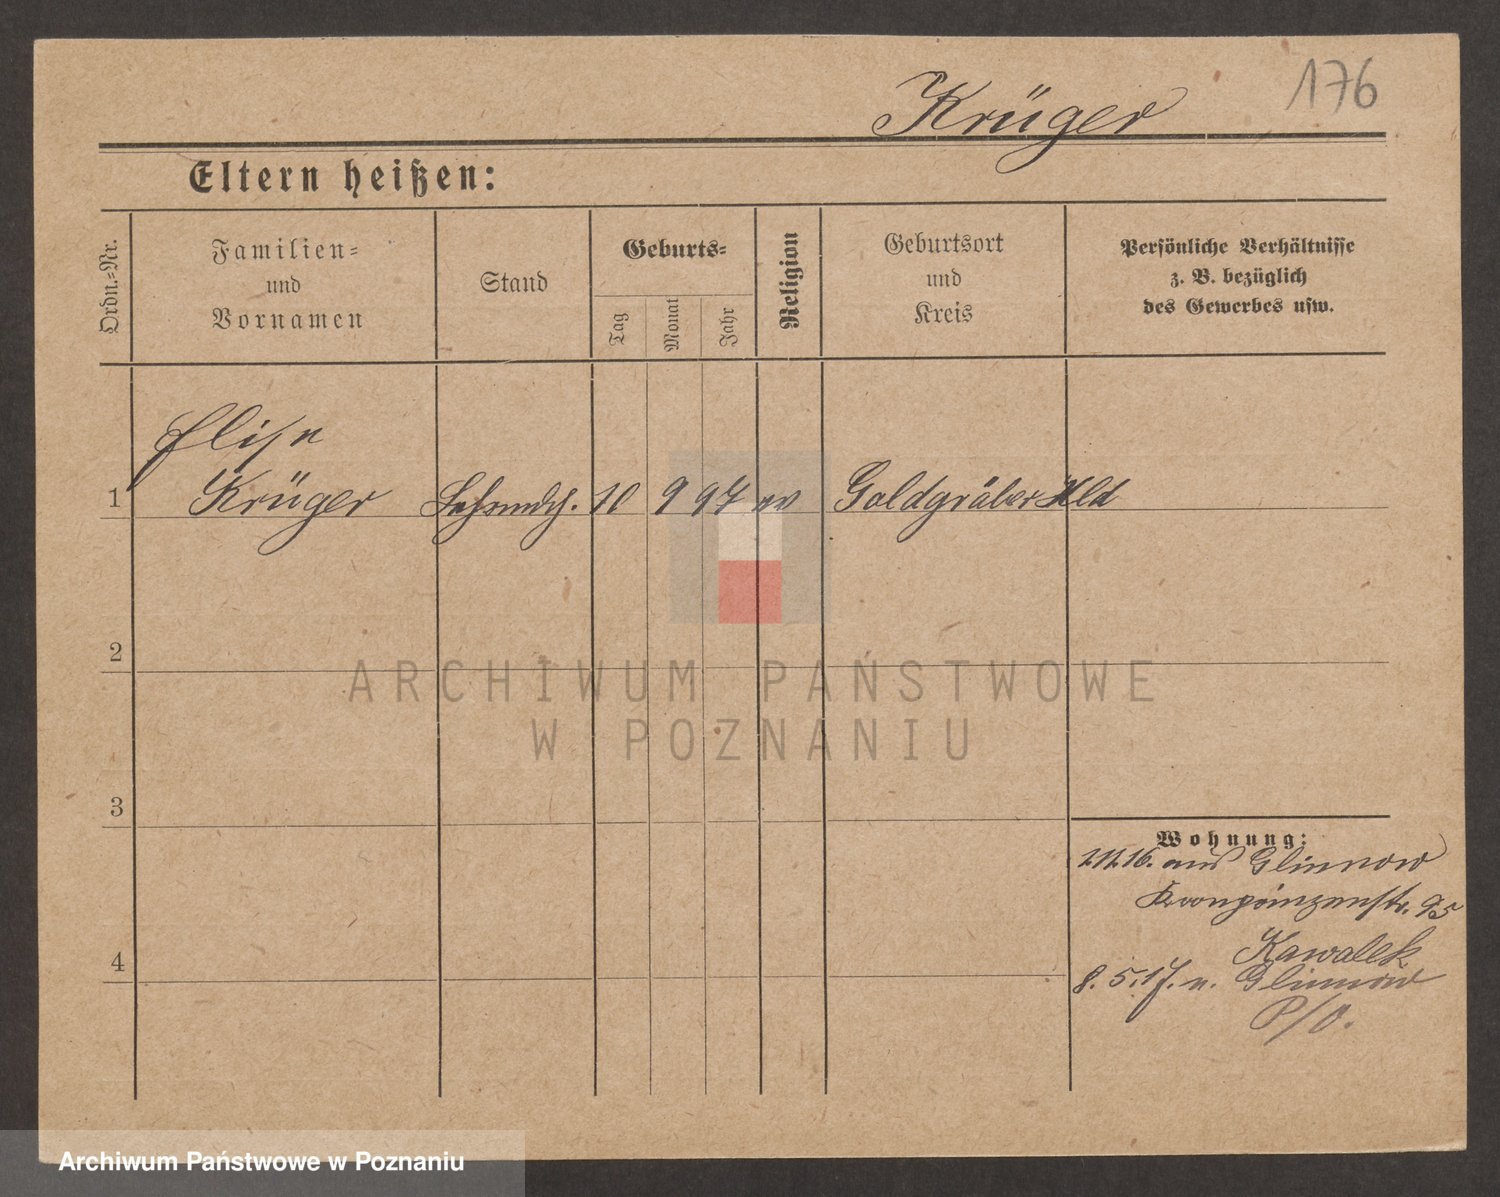 176
Krüger
Eltern heißen:
Ordn.-Nr.
Familien-
und
Vornamen
Stand
Geburts-
Tag
Monat
Jahr
Religion
Geburtsort
und
Kreis
Persönliche Verhältnisse
z. B. bezüglich
des Gewerbes usw.
Elise
1 Krüger 10 9 97 ev Goldgräber Hld
2
3
4
Wohnung:
16. aus Glinnow
Kronprinzenstr. 95
Kawalek
8. 5. 17. n. Glinnow
P/O.
ARCHIWUM PAŃSTWOWE
W POZNANIU
Archiwum Państwowe w Poznaniu